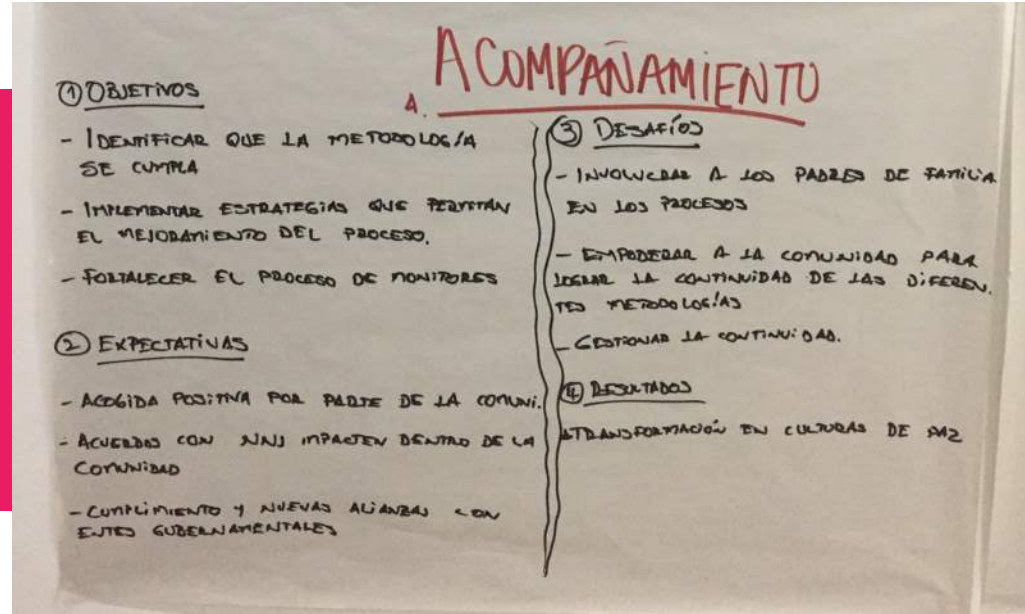 ACOMPAÑAMIENTO
A.
① OBJETIVOS
- IDENTIFICAR QUE LA METODOLOGÍA
SE CUMPLA
- IMPLEMENTAR ESTRATEGIAS QUE PERMITAN
EL MEJORAMIENTO DEL PROCESO.
- FORTALECER EL PROCESO DE MONITORES
② EXPECTATIVAS
- ACOGIDA POSITIVA POR PARTE DE LA COMUNI.
- ACUERDOS CON NNJ IMPACTEN DENTRO DE LA
COMUNIDAD
- CUMPLIMIENTO Y NUEVAS ALIANZAS CON
ENTES GUBERNAMENTALES
③ DESAFÍOS
- INVOLUCRAR A LOS PADRES DE FAMILIA
EN LOS PROCESOS
- EMPODERAR A LA COMUNIDAD PARA
LOGRAR LA CONTINUIDAD DE LAS DIFEREN.
TES METODOLOGÍAS
- GESTIONAR LA CONTINUIDAD.
④ RESULTADOS
TRANSFORMACIÓN EN CULTURAS DE PAZ